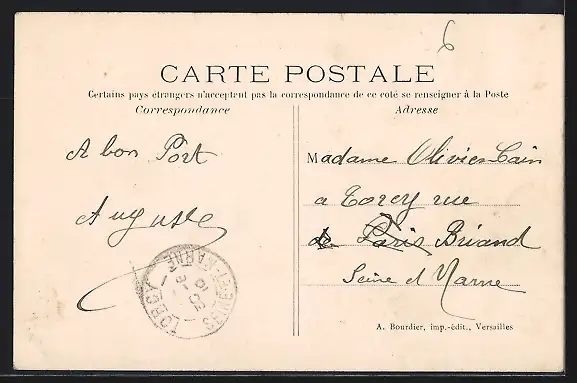 6
CARTE POSTALE
Certains pays étrangers n'acceptent pas la correspondance de ce coté se renseigner à la Poste
Correspondance
Adresse
A bon Port
Auguste
Madame Olivier Cain
a Torcy rue
de Paris Briand
Seine et Marne
TORCY
SEINE-ET-MARNE
A. Bourdier, imp.-édit., Versailles